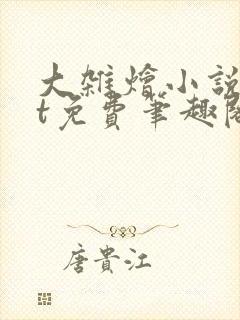 大雜燴小說
t免費筆趣閣
唐貴江